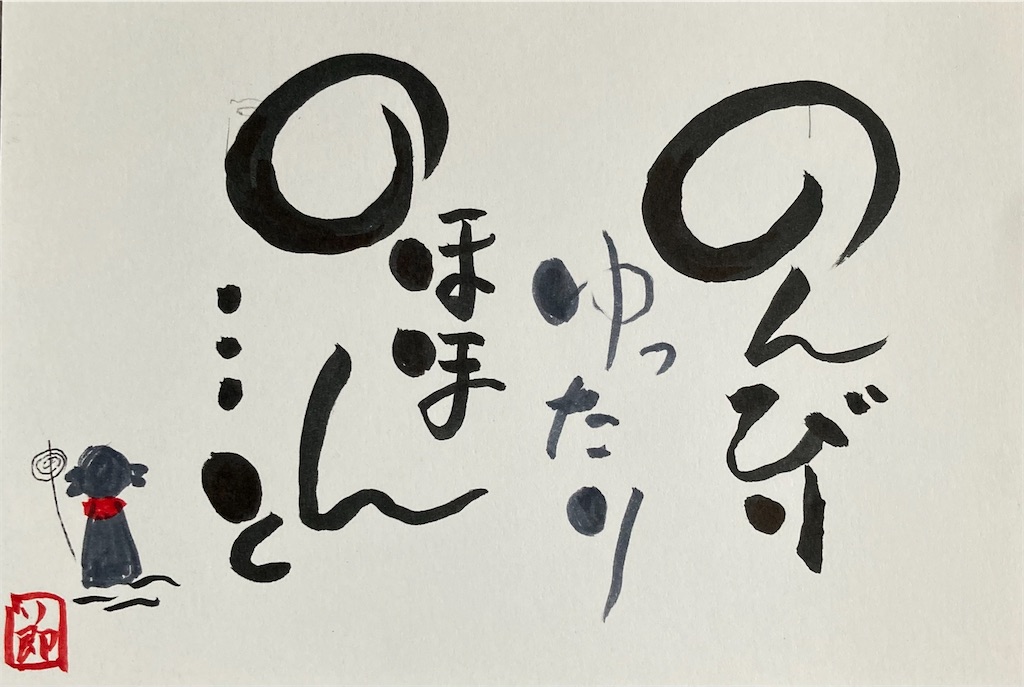 のんびり
ゆったり
のほほん
…と
節